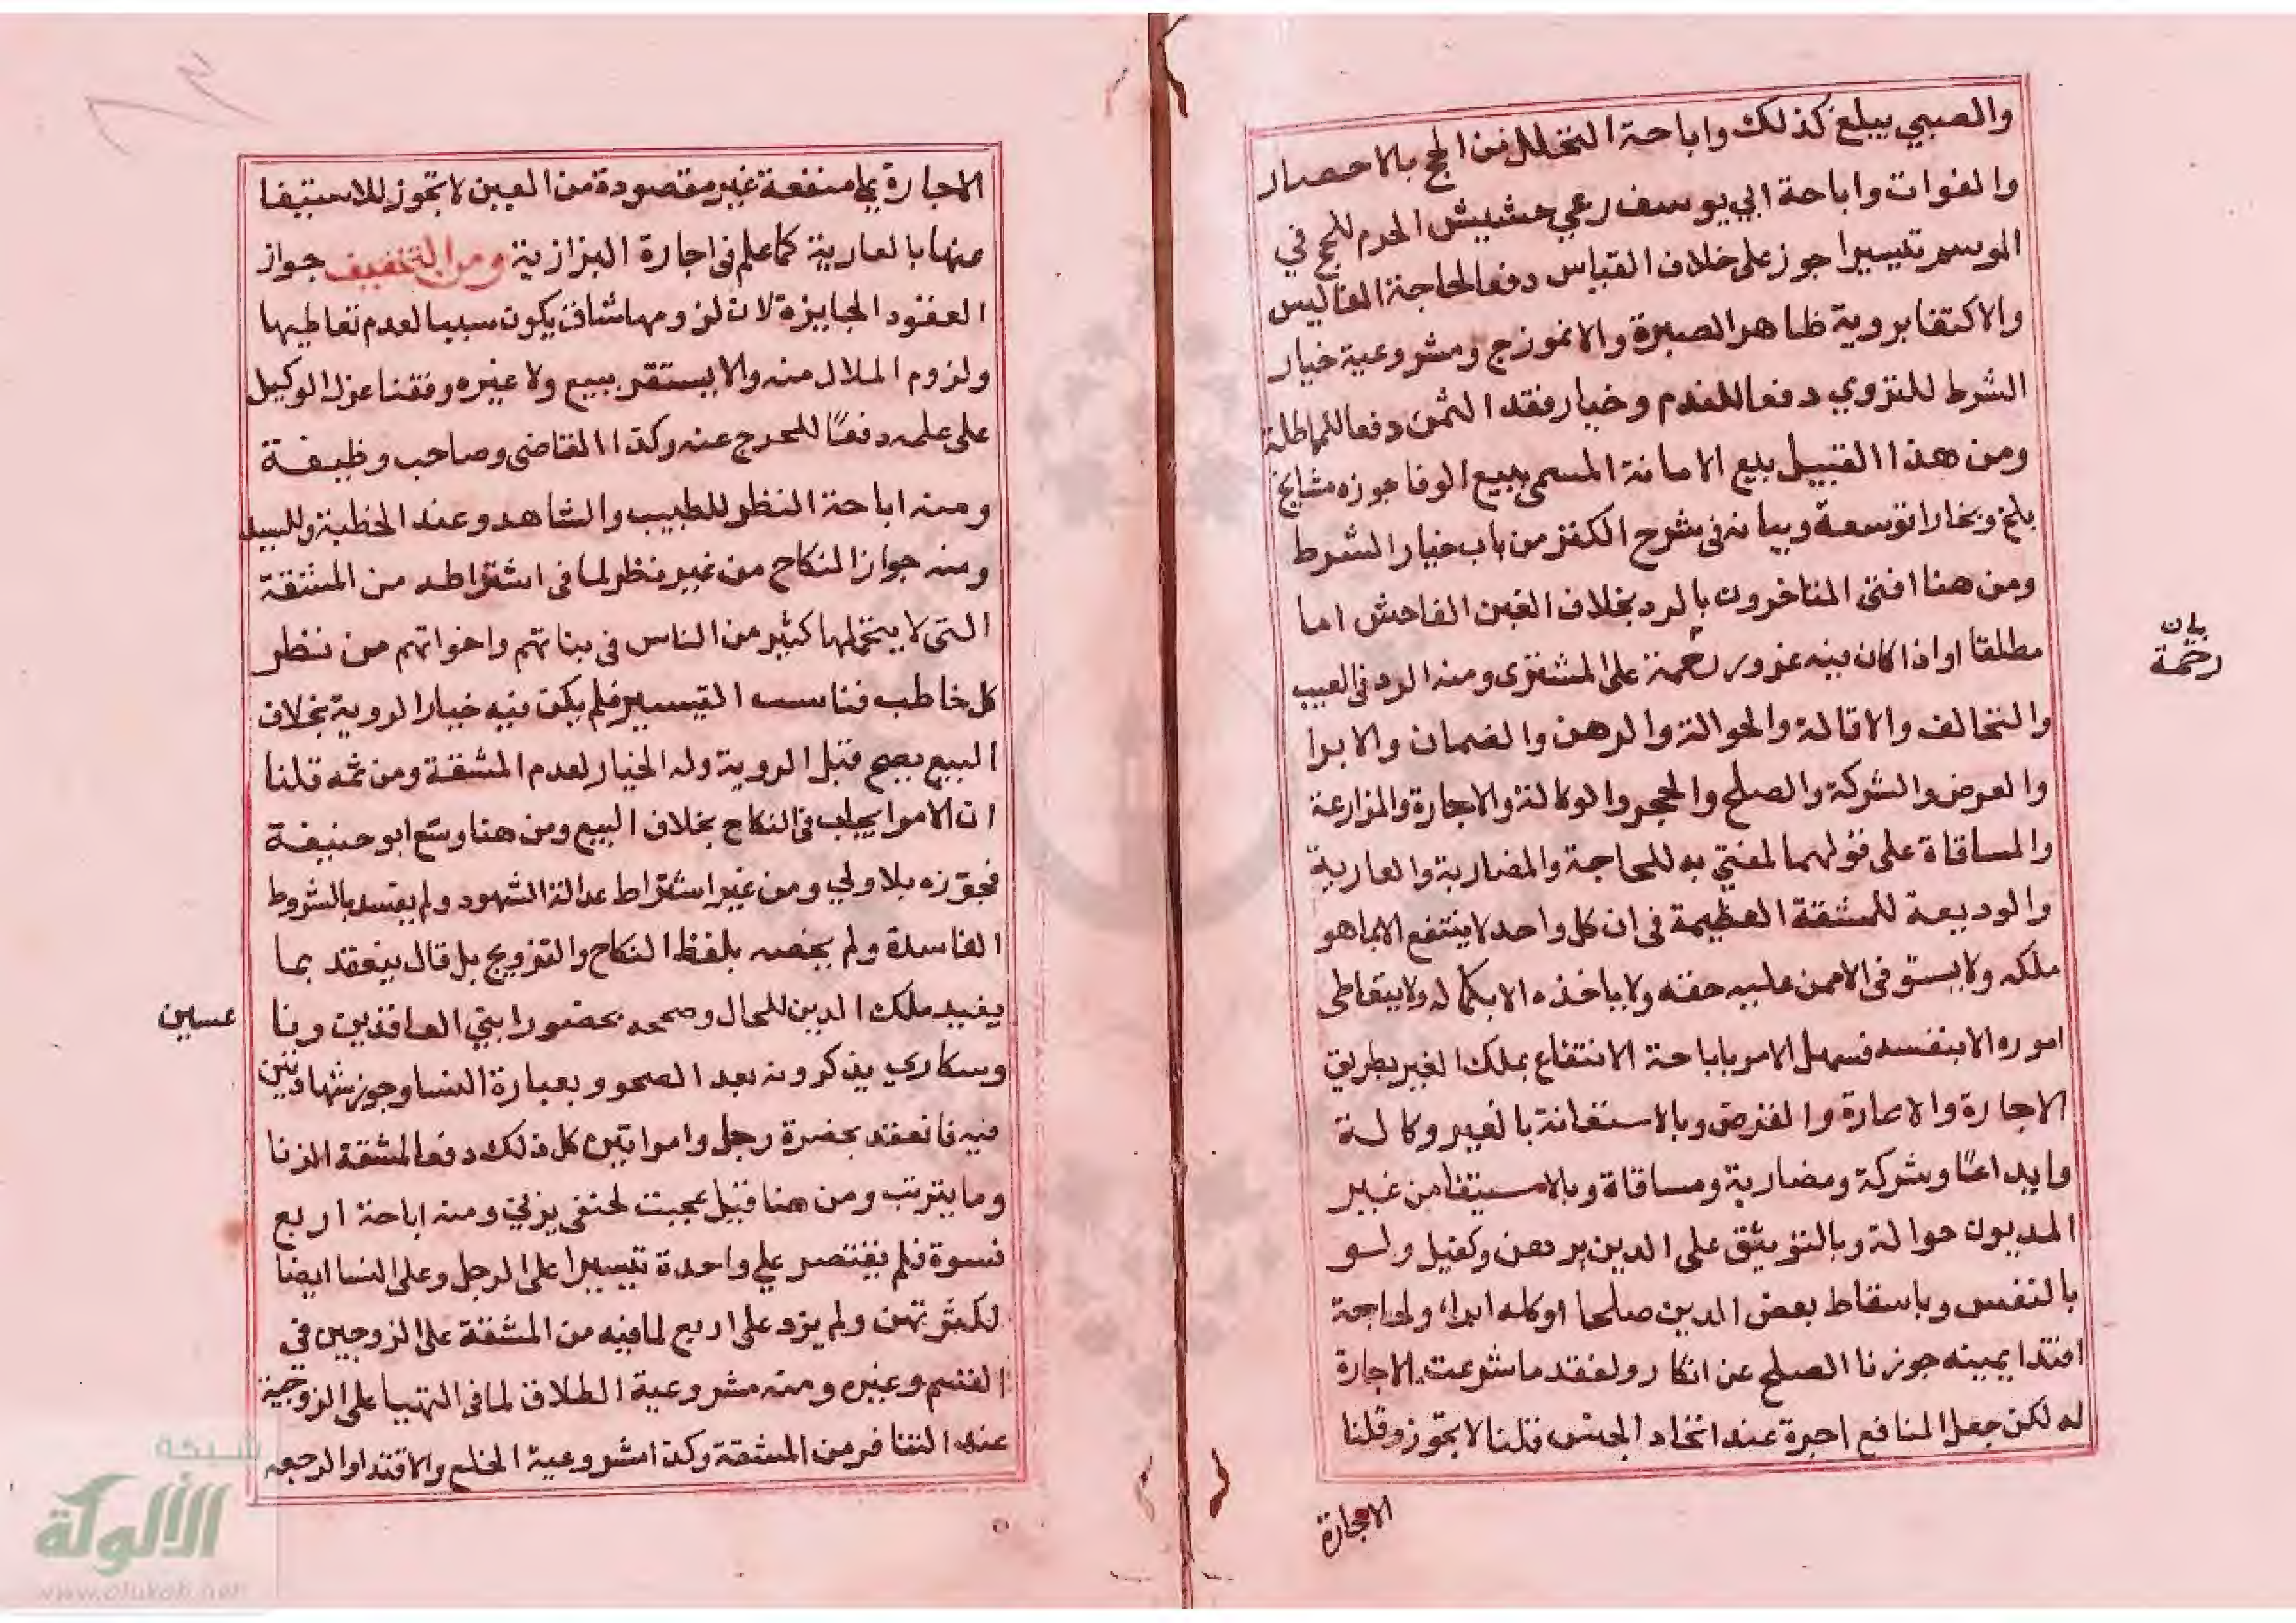 والصبي يبلغ كذلك واباحة التحلل من الحج بالاحصار
والفوات واباحة ابي يوسف رعي حشيش الحرم للحج في
الموسم تيسيرا جوز على خلاف القياس دفعا لحاجة المفاليس
والاكتفا بروية ظاهر الصبرة والانموزج ومشروعية خيار
الشرط للتروي دفعا للندم وخيار فقد الثمن دفعا للمماطلة
ومن هذا القبيل بيع الامانة المسمى ببيع الوفا جوزه مشايخ
بلخ وبخارا توسعة وبيانه في شرح الكنز من باب خيار الشرط
ومن هنا افتى المتاخرون بالرد بخلاف الغبن الفاحش اما
مطلقا او اذا كان فيه غرور رحمة على المشترى ومنه الرد في العيب
والتحالف والاقالة والحوالة والرهن والضمان والابرا
والعرض والشركة والصلح والحجر والوكالة والاجارة والمزارعة
والمساقاة على قولهما لمفتي به للحاجة والمضاربة والعارية
والوديعة للمشقة العظيمة في ان كل واحد لا ينتفع الا بما هو
ملكه ولا يستوفى الا ممن عليه حقه ولا ياخذه الا بكماله ولا يتعاطى
اموره الا بنفسه فسهل الامر باباحة الانتفاع بملك الغير بطريق
الاجارة والاعارة والقرض وبالاستعانة بالغير وكالة
وايداعًا وشركة ومضاربة ومساقاة وبالاستيفا من غير
المديون حوالة وبالتوثق على الدين برهن وكفيل ولو
بالنفس وباسقاط بعض الدين صلحا او كله ابراء ولحاجة
افتدا يمينه جوزنا الصلح عن انكار ولفقد ما شرعت الاجارة
له لكن جعل المنافع اجرة عند اتحاد الجنس قلنا لا يجوز وقلنا
الاجارة
بيان
رحمة
الاجارة بما منفعة غير مقصودة من العين لا تجوز للاستيفا
عنها بالعارية كما علم في اجارة البزازية ومن التخفيف جواز
العقود الجايزة لان لزومها شاق يكون سببا لعدم تعاطيها
ولزوم الملال منه والا يستقر ببيع ولا غيره وفقنا عزل الوكيل
على علمه دفعًا للحرج عنه وكذا القاضى وصاحب وظيفة
ومنه اباحة النظر للطبيب والشاهد وعند الخطبة وللسيد
ومنه جواز النكاح من غير نظر لما في اشتراطه من المشقة
التي لا يتحملها كثير من الناس في بناتهم واخواتهم من نظر
كل خاطب فناسب التيسير فلم يكن فيه خيار الروية بخلاف
البيع يصح قبل الروية وله الخيار لعدم المشقة ومن ثمه قلنا
ان الامر ايجاب في النكاح بخلاف البيع ومن هنا وسّع ابو حنيفة
فجوّزه بلا ولي ومن غير اشتراط عدالة الشهود ولم يفسد بالشروط
الفاسدة ولم يخصه بلفظ النكاح والتزويج بل قال ينعقد بما
يفيد ملك الدين للحال وصححه بحضور ابني العاقدين ونا
عساين
وسكارى يذكرونه بعد الصحو وبعبارة النسا وجوز شهادتين
فيه فانعقد بحضرة رجل وامراتين كل ذلك دفعا لمشقة الزنا
وما يترتب ومن هنا قيل عجبت لحنفى يزني ومنه اباحة اربع
نسوة فلم يقتصر علي واحدة تيسيرا على الرجل وعلى النسا ايضا
لكثرتهن ولم يزد على اربع لما فيه من المشقة على الزوجين في
القسم وغيره ومنه مشروعية الطلاق لما في التهيا على الزوجية
عند التنافر من المشقة وكذا مشروعية الخلع والافتدا والرجعه
شبكة
الألوكة
www.alukah.net